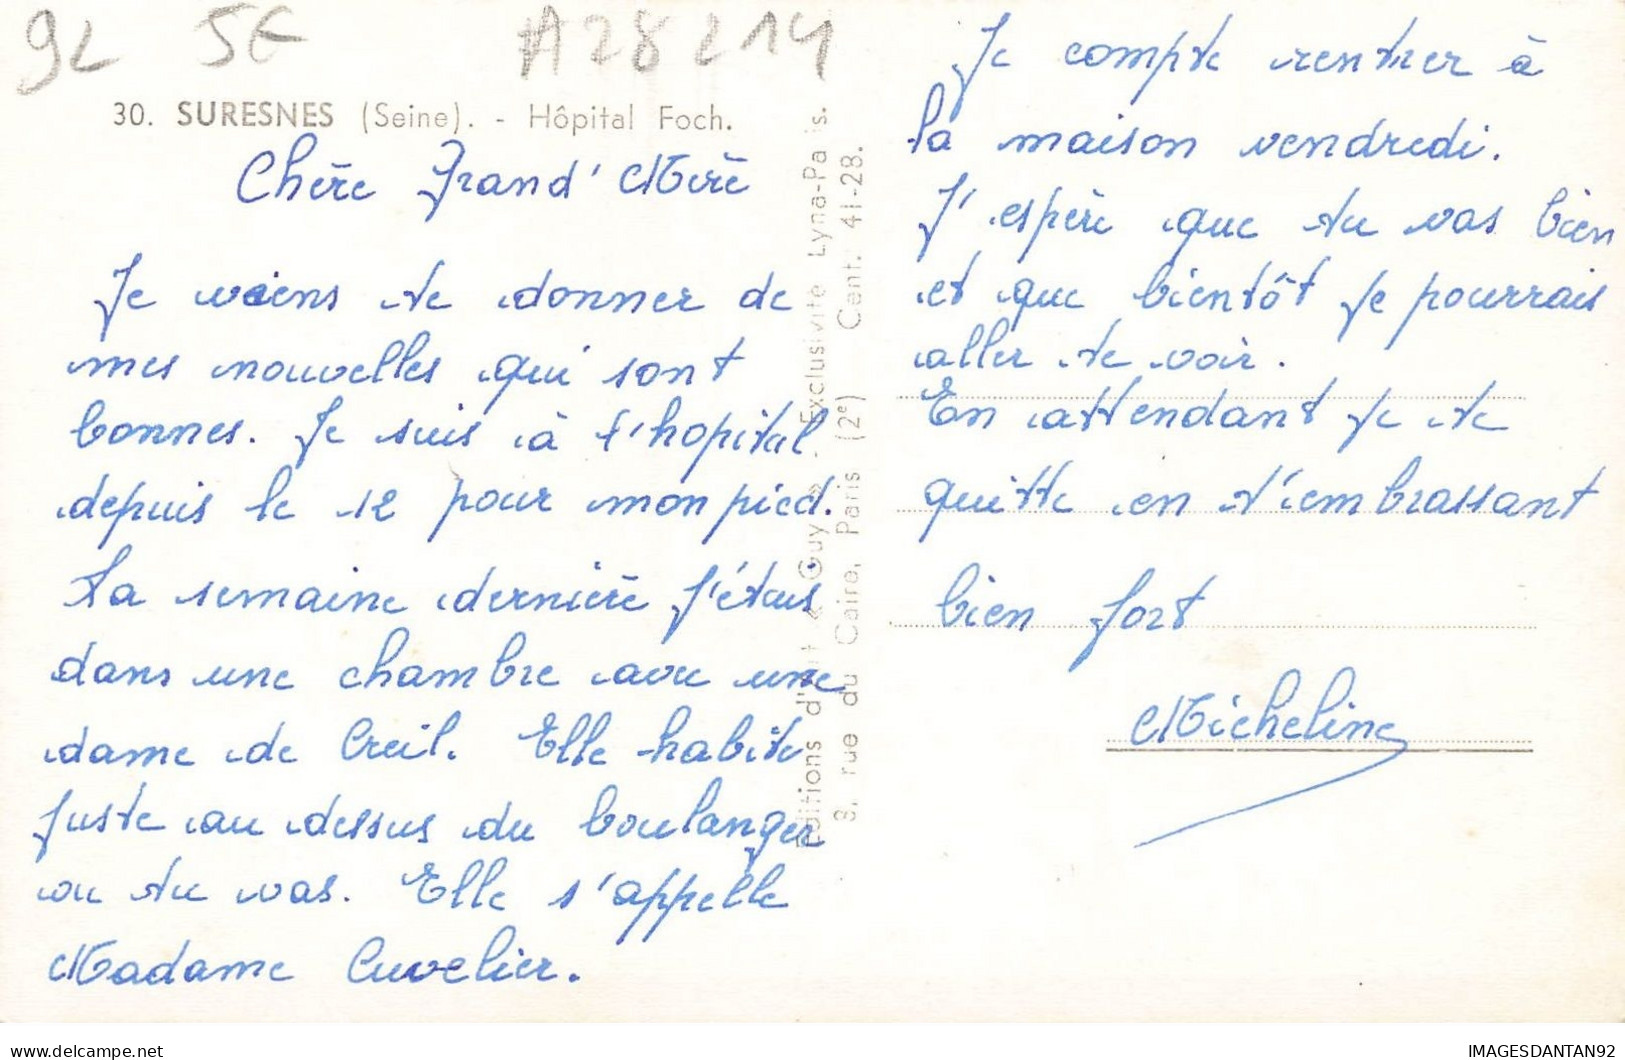 92 5E A28214
30. SURESNES (Seine). - Hôpital Foch.
Chère Grand' Mère
Je viens te donner de
mes nouvelles qui sont
bonnes. Je suis à l'hopital
depuis le 12 pour mon pied.
La semaine dernière j'étais
dans une chambre avec une
dame de Creil. Elle habite
juste au dessus du boulanger
ou tu vas. Elle s'appelle
Madame Cuvelier.
Editions d'art « Guy » - Exclusivité Lyna-Paris.
8, rue du Caire, Paris (2e) Cent. 41-28.
Je compte rentrer à
la maison vendredi.
J'espère que tu vas bien
et que bientôt je pourrais
aller te voir.
En attendant je te
quitte en t'embrassant
bien fort
Micheline
delcampe.net
IMAGESDANTAN92